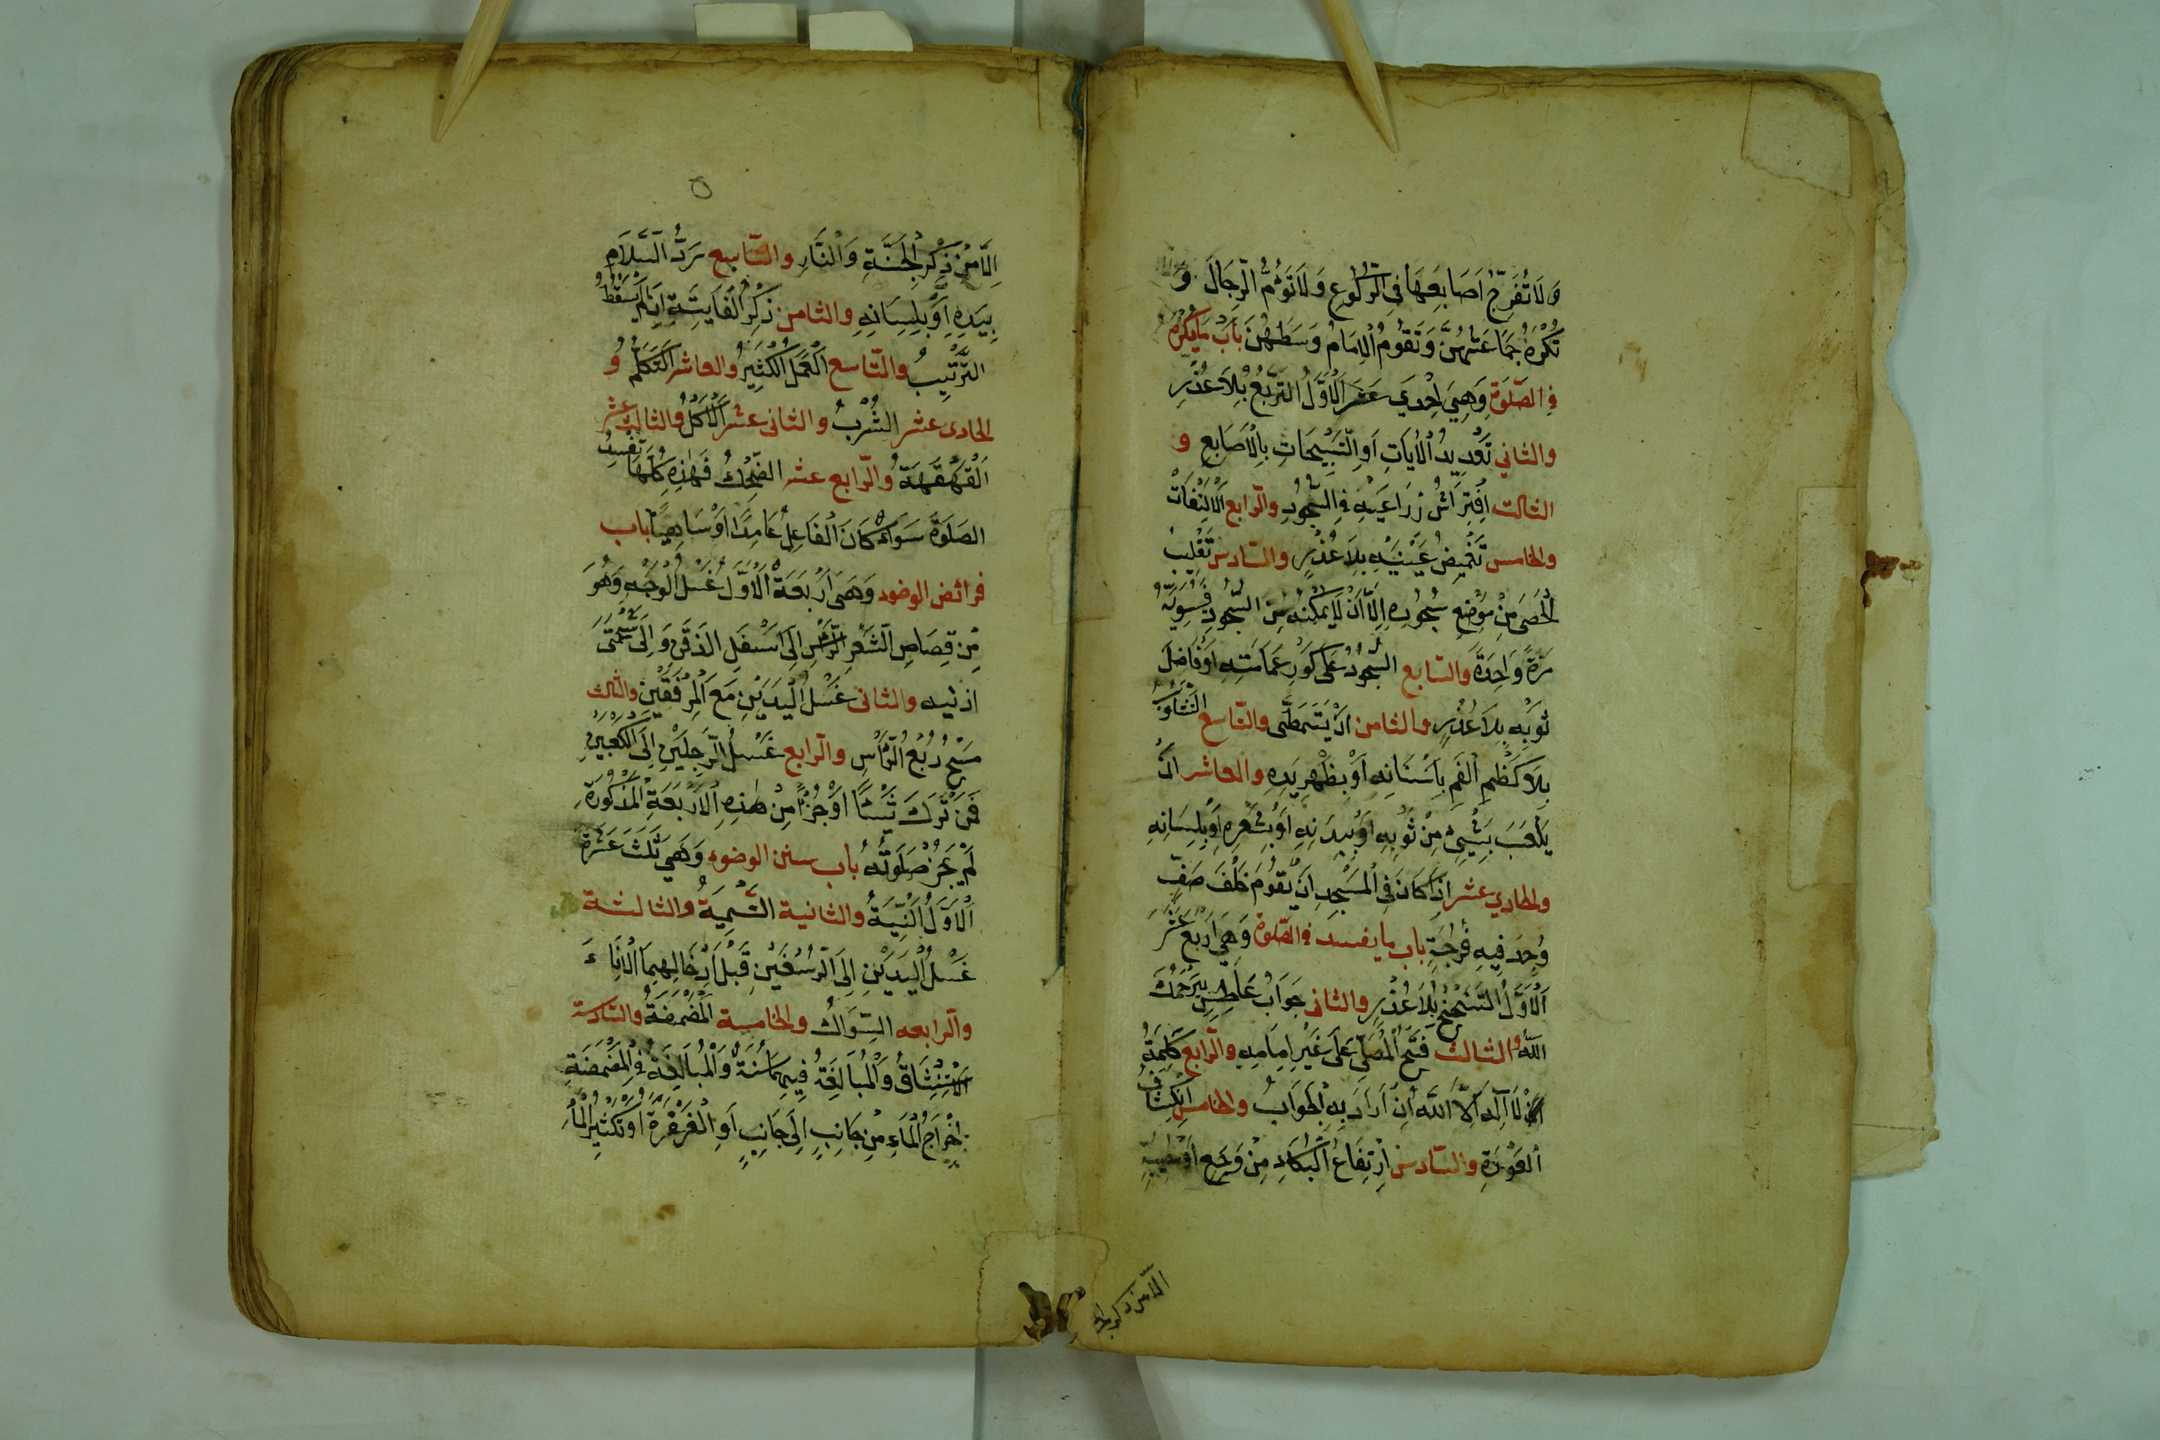 وَلَا تُفَرِّجُ اَصَابِعَهَا فِي الرُّكُوعِ وَلَا تَؤُمُّ الرِّجَالَ وَ
تُكْرَهُ جَمَاعَتُهُنَّ وَتَقُومُ الْاِمَامُ وَسَطَهُنَّ بَابُ مَا يُكْرَهُ
فِي الصَّلَوةِ وَهِيَ اِحْدَي عَشَرَ اَلْاَوَّلُ التَّرَبُّعُ بِلَا عُذْرٍ
والثاني تَعْدِيدُ الْاٰيَاتِ اَوِ التَّسْبِيحَاتِ بِالْاَصَابِعِ و
الثالث اِفْتِرَاشُ زِرَاعَيْهِ فِي السُّجُودِ والرابع اَلْاِلْتِفَاتُ
والخامس تَغْمِيضُ عَيْنَيْهِ بِلَا عُذْرٍ والسادس تَقْلِيبُ
الْحَصَى مِنْ مَوْضِعِ سُجُودِهِ اِلَّا اَنْ لَا يُمْكِنَهُ مِنَ السُّجُودِ فَيُسَوِّيَهُ
مَرَّةً وَاحِدَةً والسابع السُّجُودُ عَلَى كَوْرِ عَمَامَتِهِ اَوْ فَاضِلِ
ثَوْبِهِ بِلَا عُذْرٍ والثامن اَنْ يَتَمَطَّى والتاسع التَّثَاوُبُ
بِلَا كَظْمِ الْفَمِ بِاَسْنَانِهِ اَوْ بِظَهْرِ يَدِهِ والعاشر اَنْ
يَلْعَبَ بِشَيْئٍ مِنْ ثَوْبِهِ اَوْ بِبَدَنِهِ اَوْ بِشَعْرِهِ اَوْ بِلِسَانِهِ
والحادي عشر اِذَا كَانَ فِي الْمَسْجِدِ اَنْ يَقُومَ خَلْفَ صَفٍّ
وُجِدَ فِيهِ فُرْجَةٌ باب ما يفسد في الصَّلوة وَهِيَ اَرْبَعَ عَشَرَ
اَلْاَوَّلُ التَّنَحْنُحُ بِلَا عُذْرٍ والثاني جَوَابُ عَاطِسٍ يَرْحَمُكَ
اللّٰه والثالث فَتْحُ الْمُصَلِّي عَلَى غَيْرِ اِمَامِهِ والرابع كَلِمَةُ
لَا اِلٰهَ اِلَّا اللّٰهُ اِنْ اَرَادَ بِهِ الْجَوَابَ والخامس اِنْكِشَافُ
الْعَوْرَةِ والسادس اِرْتِفَاعُ الْبُكَاءِ مِنْ وَجَعٍ
الا من ذكر الجنة
٥
اِلَّا مِنْ ذِكْرِ الْجَنَّةِ وَالنَّارِ والسابع رَدُّ السَّلَامِ
بِيَدِهِ اَوْ بِلِسَانِهِ والثامن ذِكْرُ الْفَايِتَةِ اِنْ لَمْ يَسْقُطِ
التَّرْتِيبُ والتاسع اَلْعَمَلُ الْكَثِيرُ والعاشر اَلتَّكَلُّمُ وَ
الحادى عشر الشُّرْبُ والثانى عشر اَلْاَكْلُ والثالث عشر
اَلْقَهْقَهَةُ والرابع عشر الضِّحْكُ فَهٰذِهِ كُلُّهَا تُفْسِدُ
الصَّلَوةَ سَوَاءٌ كَانَ الْفَاعِلُ عَامِدًا اَوْ سَاهِيًا باب
فرائض الوضوء وَهِيَ اَرْبَعَةٌ اَلْاَوَّلُ غَسْلُ الْوَجْهِ وَهُوَ
مِنْ قِصَاصِ الشَّعْرِ الرَّأْسِ اِلَى اَسْفَلِ الذَّقَنِ وَ اِلَى شَحْمَتَيْ
اذنيه والثانى غَسْلُ الْيَدَيْنِ مَعَ الْمِرْفَقَيْنِ والثالث
مَسْحُ رُبُعِ الرَّأْسِ والرابع غَسْلُ الرِّجْلَيْنِ اِلَى الْكَعْبَيْنِ
فَمَنْ تَرَكَ شَيْئًا اَوْ جُزْأً مِنْ هٰذِهِ الْاَرْبَعَةِ الْمَذْكُورَةِ
لَمْ يَجُزْ صَلَوتُهُ باب سنن الوضوء وَهِيَ ثَلٰثَ عَشْرَةَ
اَلْاَوَّلُ النِّيَّةُ والثانية التَّسْمِيَةُ والثالثة
غَسْلُ الْيَدَيْنِ اِلَى الرُّسْغَيْنِ قَبْلَ اِدْخَالِهِمَا الْاِنَاءَ
والرابعه السِّوَاكُ والخامسة اَلْمَضْمَضَةُ والسادسة
اَلْاِسْتِنْشَاقُ وَالْمُبَالَغَةُ فِيهِمَا سُنَّةٌ وَالْمُبَالَغَةُ فِي الْمَضْمَضَةِ
اِخْرَاجُ الْمَاءِ مِنْ جَانِبٍ اِلَى جَانِبٍ اَوِ الْغَرْغَرَةُ اَوْ تَكْثِيرُ الْمَاءِ